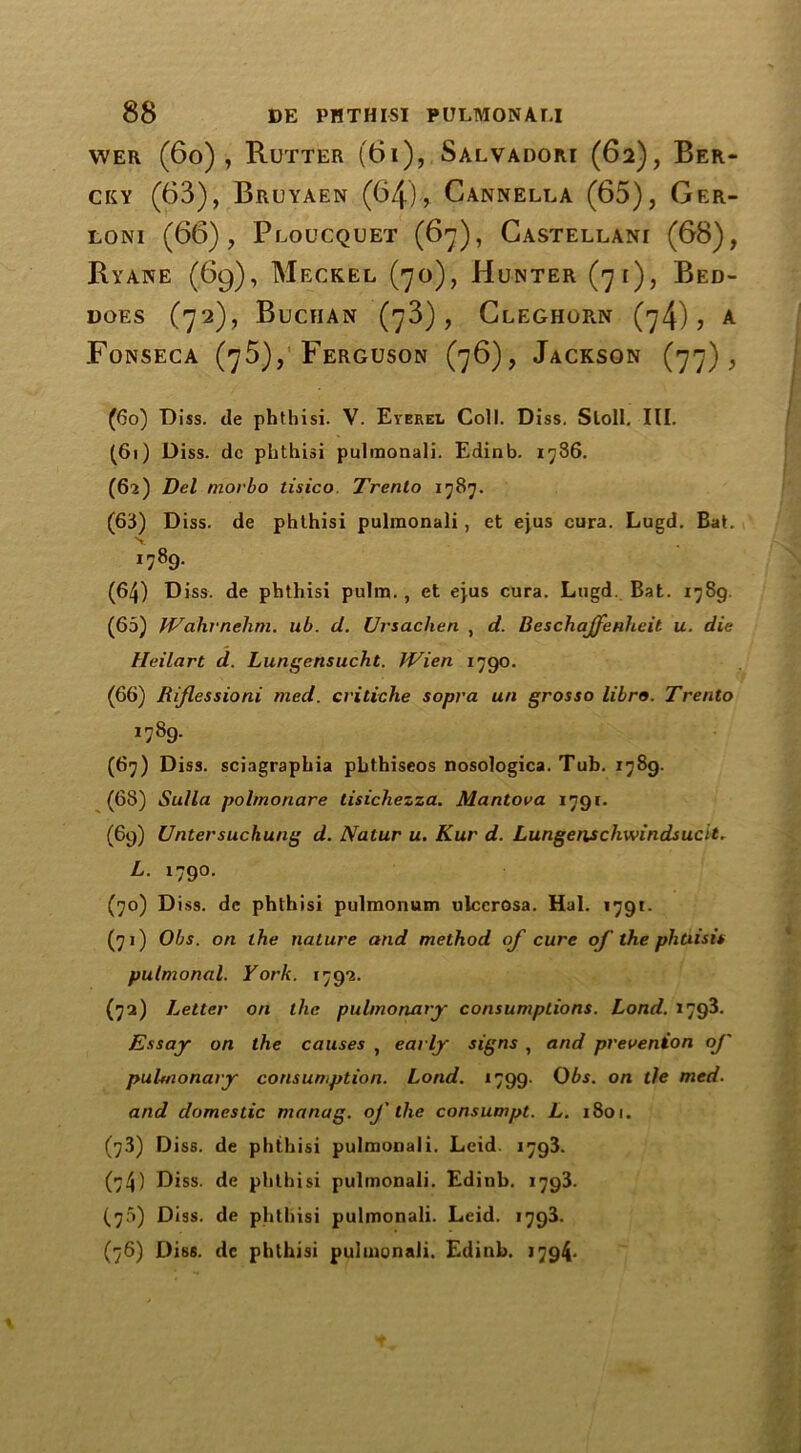 88 DE PHTHISI PULMONALI
WER (60) , RUTTER (61), SALVADORI (62), BER-
CKY (63), BRUYAEN (64), CANNELLA (65), GER-
LONI (66) , PLOUCQUET (67), CASTELLANI (68),
RYANE (69), MECKEL (70), HUNTER (71), BED-
DOES (72), BUCHAN (73) , CLEGHORN (74) , A
FONSECA (75), FERGUSON (76), JACKSON (77) ,
(60) Diss. de phthisi. V. EYEREL Coll. Diss. Stoll. III.
(61) Diss. de phthisi pulmonali. Edinb. 1786.
(62) Del morbo tisico. Trento 1787.
(63) Diss. de phthisi pulmonali , et ejus cura. Lugd. Bat.
1789.
(64) Diss. de phthisi pulm. , et ejus cura. Lugd. Bat. 1789.
(65) Wahrnehm. ub. d. Ursachen , d. Beschaffenheit u. die
Heilart d. Lungensucht. Wien 1790.
(66) Riflessioni med. critiche sopra un grosso libro. Trento
1789.
(67) Diss. sciagraphia phthiseos nosologica. Tub. 1789.
(68) Sulla polmonare tisichezza. Mantova 1791.
(69) Untersuchung d. Natur u. Kur d. Lungenschwindsucit.
L. 1790.
(70) Diss. de phthisi pulmonum ulcerosa. Hal. 1791.
(71) Obs. on the nature and method of cure of the phtisis
pulmonal. York. 1792.
(72) Letter on the pulmonary consumptions. Lond. 1793.
Essay on the causes , early signs , and prevenion of
pulmonary consumption. Lond. 1799. Obs. on tle med.
and domestic manag. of the consumpt. L. 1801.
(73) Diss. de phthisi pulmonali. Leid. 1793.
(74) Diss. de phthisi pulmonali. Edinb. 1793.
(75) Diss. de phthisi pulmonali. Leid. 1793.
(76) Diss. de phthisi pulmonali. Edinb. 1794.